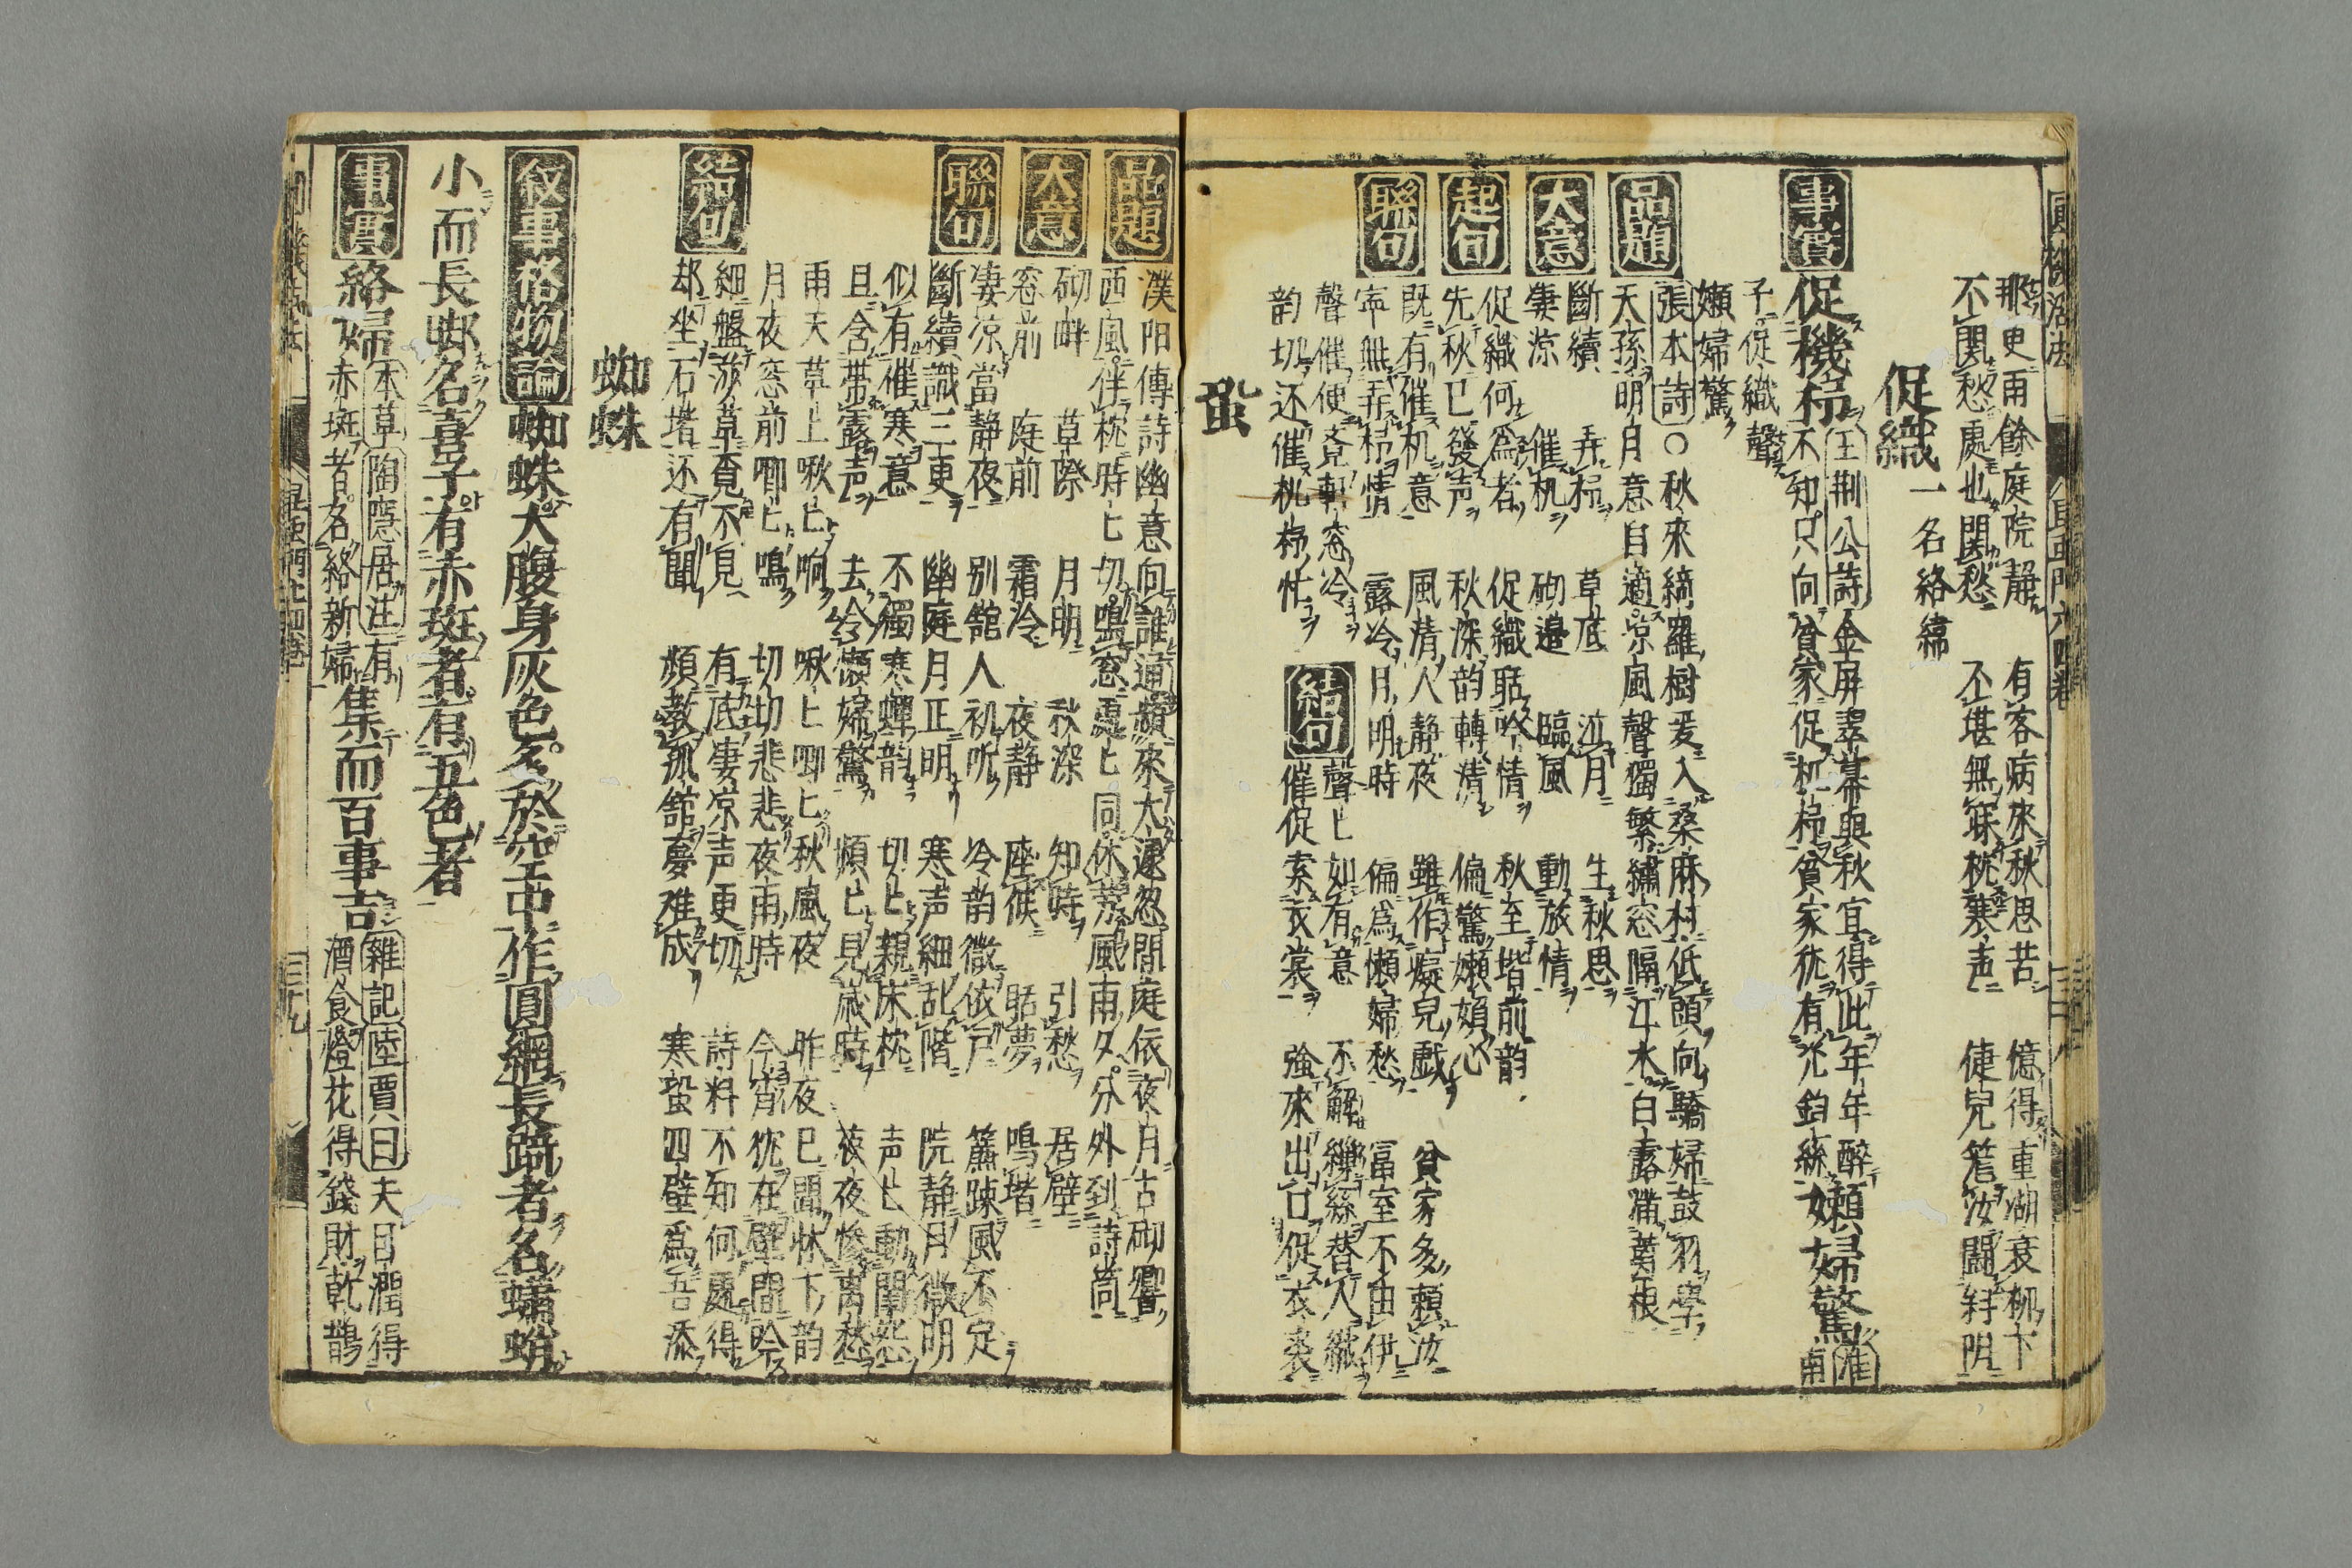 那更雨餘庭院靜 有客病來秋思苦 億得重湖衰柳下
不関愁處也関愁 不堪無寐枕寒声 倢兒篭汝鬪斜陽
促織一名絡緯
事實 促機杼 王荊公詩 金屏翠幕與秋宜得此年年醉
不知只向貧家促機杼貧家犹有光鈞絲 嬾婦驚 淮南
子促織聲
嬾婦驚
品題 張本詩 ○秋來綺羅樹爰入桑麻村低頭向驕婦鼓羽學
天孫明月意自適凉風聲獨繁繡窓隔江水白露滿莄根
大意 斷續 弄杼 草底 泣月 生秋思
凄涼 催机 砌邉 臨風 動旅情
起句 促織何爲者 促織聒吟情 秋至堦前韵
先秋已發声 秋深韵轉清 偏驚嬾婦心
聯句 既有催机意 風清人静夜 雖作癡兒戯 貧家多頼汝
寧無弄杼情 露冷月明時 偏爲懶婦愁 富室不由伊
聲催便覓軒窓冷 聲ヒ如有意 不解繰絲替人織
韵切还催机杼忙 結句 催促索衣裳 強來出口促衣裘
蛩
品題 濮阳傳詩幽意向誰通頻來大遽怱間庭依夜月古砌響
西風伴枕時ヒ切鳴窓憂ヒ同休労風雨夕分外到詩筒
大意 砌畔 草際 月明 秋深 知時 引愁 居壁
窓前 庭前 霜冷 夜静 座候 聒夢 鳴堦
聯句 凄凉當静夜 别舘人初听 冷韵微依戸 簾踈風不定
斷續識三更 幽庭月正明 寒声細乱階 院静月微明
似有催寒意 不獨寒蟬韵 切ヒ親床枕 声ヒ動閨怨
且含带露声 去令懶婦驚 頻ヒ見歳時 夜夜惨离愁
雨天草上啾ヒ响 啾ヒ唧ヒ秋風夜 昨夜已聞床下韵
月夜窓前唧ヒ鳴 切切悲悲夜雨時 今宵犹在壁間吟
結句 細盤莎草覓不見 有底凄凉声更切 詩料不知何處得
却坐石堦还有聞 頻教孤舘夢难成 寒蛩四壁爲吾添
蜘蛛
叙事格物論 蜘蛛大腹身灰色多於空中作圓網長踦者名蠨蛸
小而長脚名喜子有赤斑者有五色者
事實 絡婦 本草 陶隱居注 有 集而百事吉 雜記 陸賈曰 夫目潤得
赤斑者名絡新婦 酒食燈花得錢財乾鵲